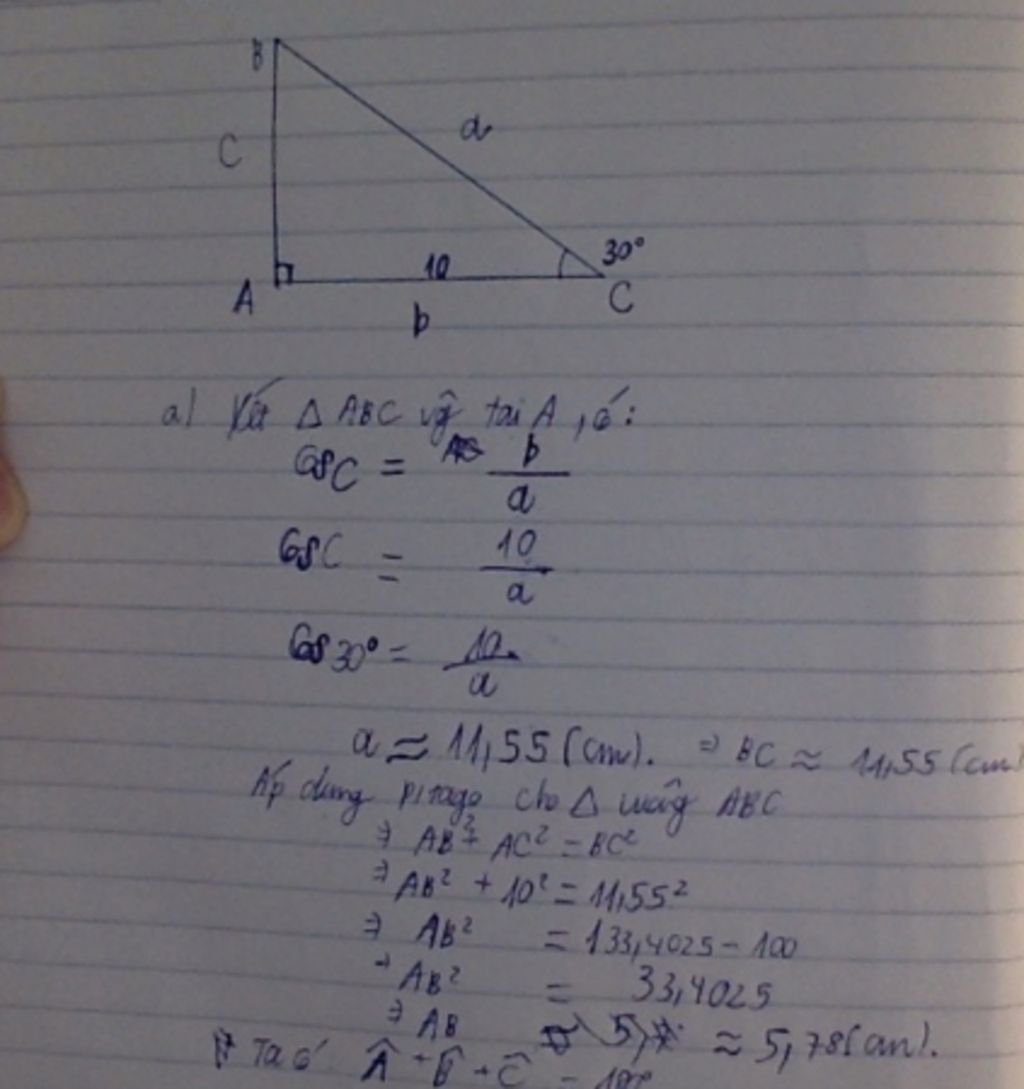 B
C
a
30°
A
10
C
b
a) Xét Δ ABC vg tại A, có:
cosC = b/a
cosC = 10/a
cos30° = 10/a
a ≈ 11,55 (cm). ⇒ BC ≈ 11,55 (cm
Áp dụng pitago cho Δ vuông ABC
⇒ AB² + AC² = BC²
⇒ AB² + 10² = 11,55²
⇒ AB² = 133,4025 - 100
⇒ AB² = 33,4025
⇒ AB ≈ 5,78 (cm).
Ta có Â + B̂ + Ĉ =